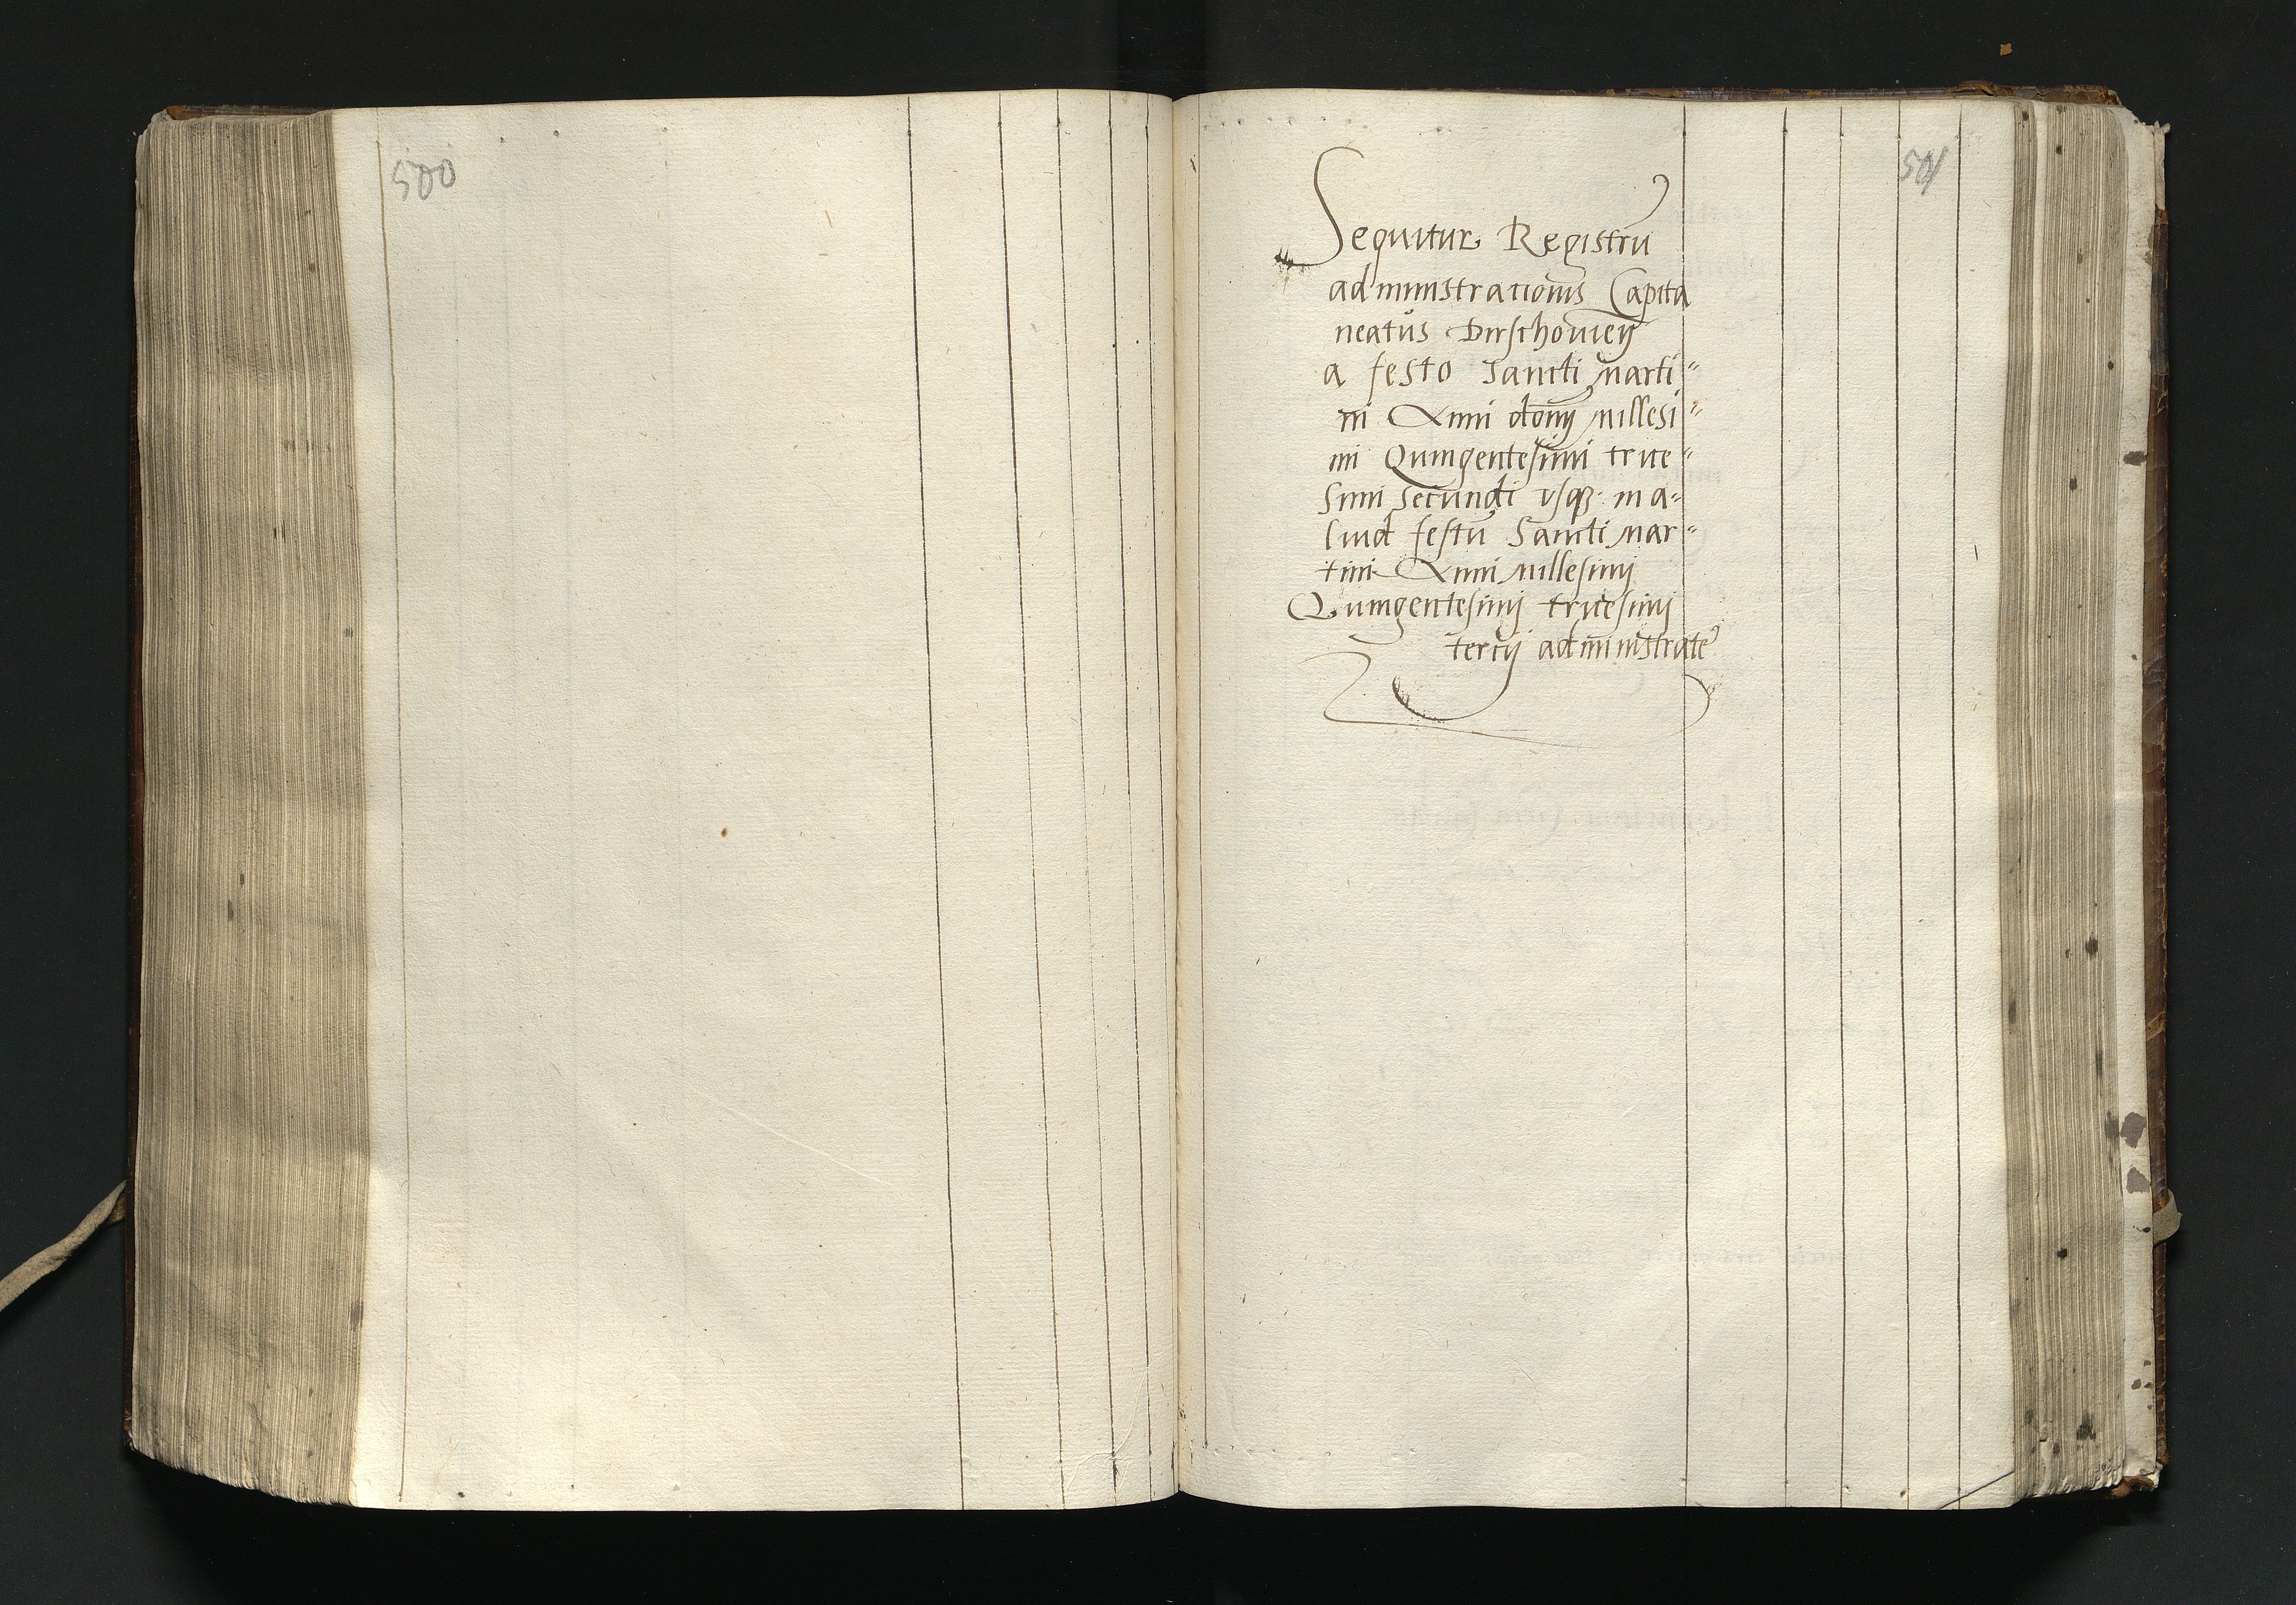 500
501
Sequitur Registrū
administracionis Capita
neatus Dirschoviеn̄
a festo Sancti Marti=
ni Anni dōnij Millesi=
mi Quingentesimi trice=
simi secundi vsq3 in a=
liud festū Sancti Mar=
tini Anni Millesimij
Quingentesimij tricesimij
tercij administrate